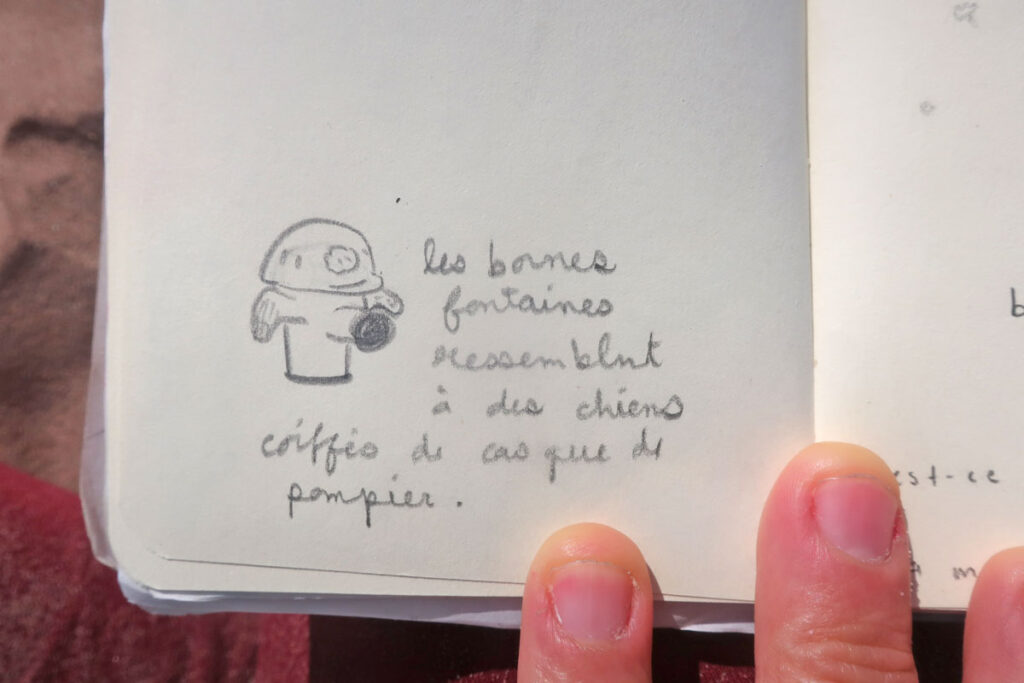 les bornes
fontaines
ressemblnt
à des chiens
coiffés de casque de
pompier.
b
est-ce
m